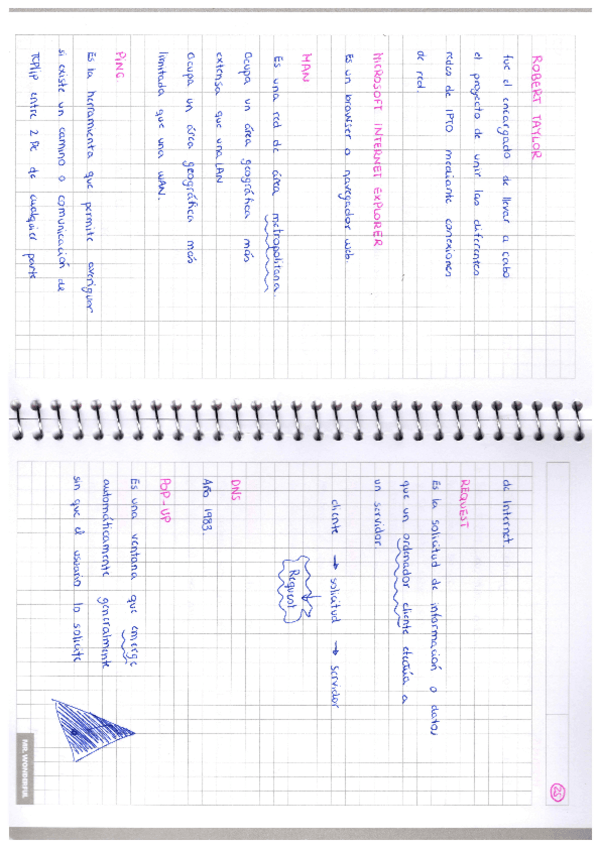 ROBERT TAYLOR
fue el encargado de llevar a cabo
el proyecto de unir las diferentes
redes de IPTO mediante conexiones
de red.
MICROSOFT INTERNET EXPLORER
Es un browser o navegador web.
MAN
Es una red de área metropolitana.
Ocupa un área geográfica más
extensa que una LAN
Ocupa un área geográfica más
limitada que una WAN.
PING.
Es la herramienta que permite averiguar
si existe un camino o comunicación de
TCP/ip entre 2 PC de cualquier parte
25
de Internet.
REQUEST
Es la solicitud de información o datos
que un ordenador cliente efectúa a
un servidor.
cliente → solicitud → servidor
Request
DNS
Año 1983.
POP-UP
Es una ventana que emerge
automáticamente generalmente
sin que el usuario lo solicite
MR. WONDERFUL